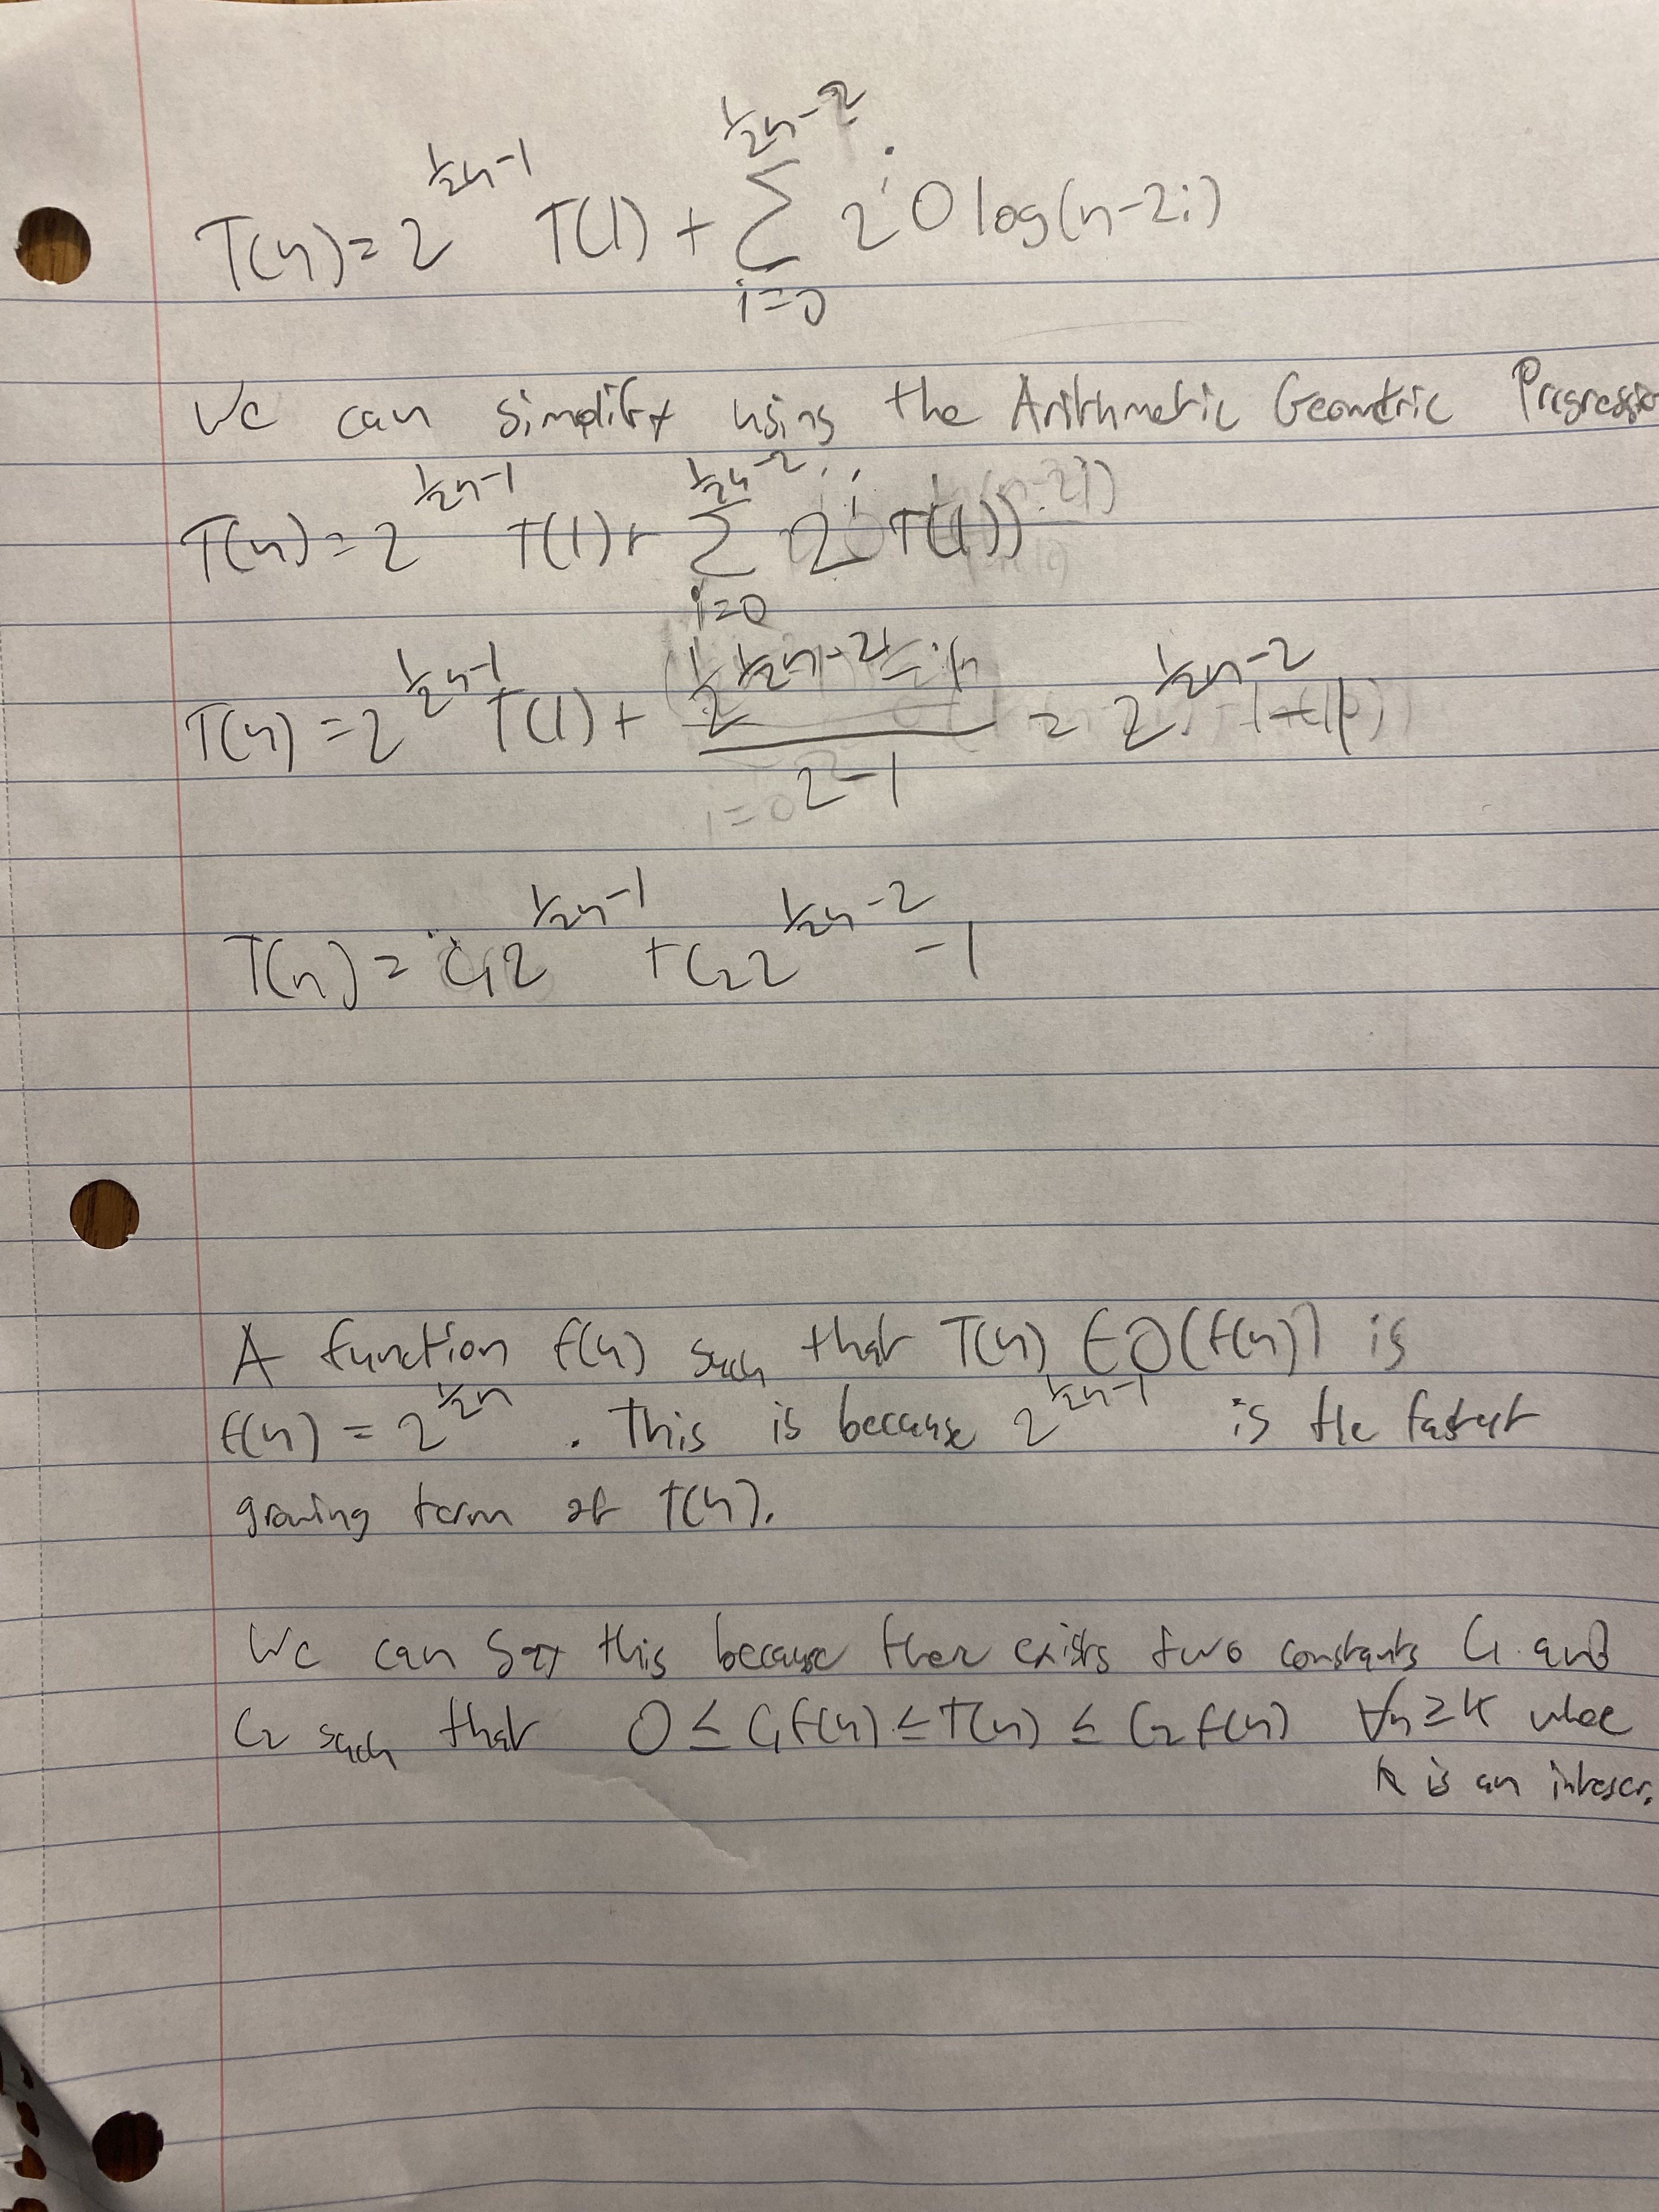 T(n) = 2^{1/2n-1} T(1) + \sum_{i=0}^{1/2n-2} 2^i O log(n-2i)
We can simplify using the Arithmetic Geometric Progressio
T(n) = 2^{1/2n-1} T(1) + \sum_{i=0}^{1/2n-2} 2^i T(1))
T(n) = 2^{1/2n-1} T(1) + \frac{2^{1/2n-2}}{2-1} = 2^{1/2n-2} -1
T(n) = C_1 2^{1/2n-1} + C_2 2^{1/2n-2} - 1
A function f(n) such that T(n) ∈ Θ(f(n)) is
f(n) = 2^{1/2n}. This is because 2^{1/2n-1} is the fastest
growing term of T(n).
We can say this because ther exists two constants C_1 and
C_2 such that 0 ≤ C_1 f(n) ≤ T(n) ≤ C_2 f(n) ∀n ≥ K where
K is an integer.